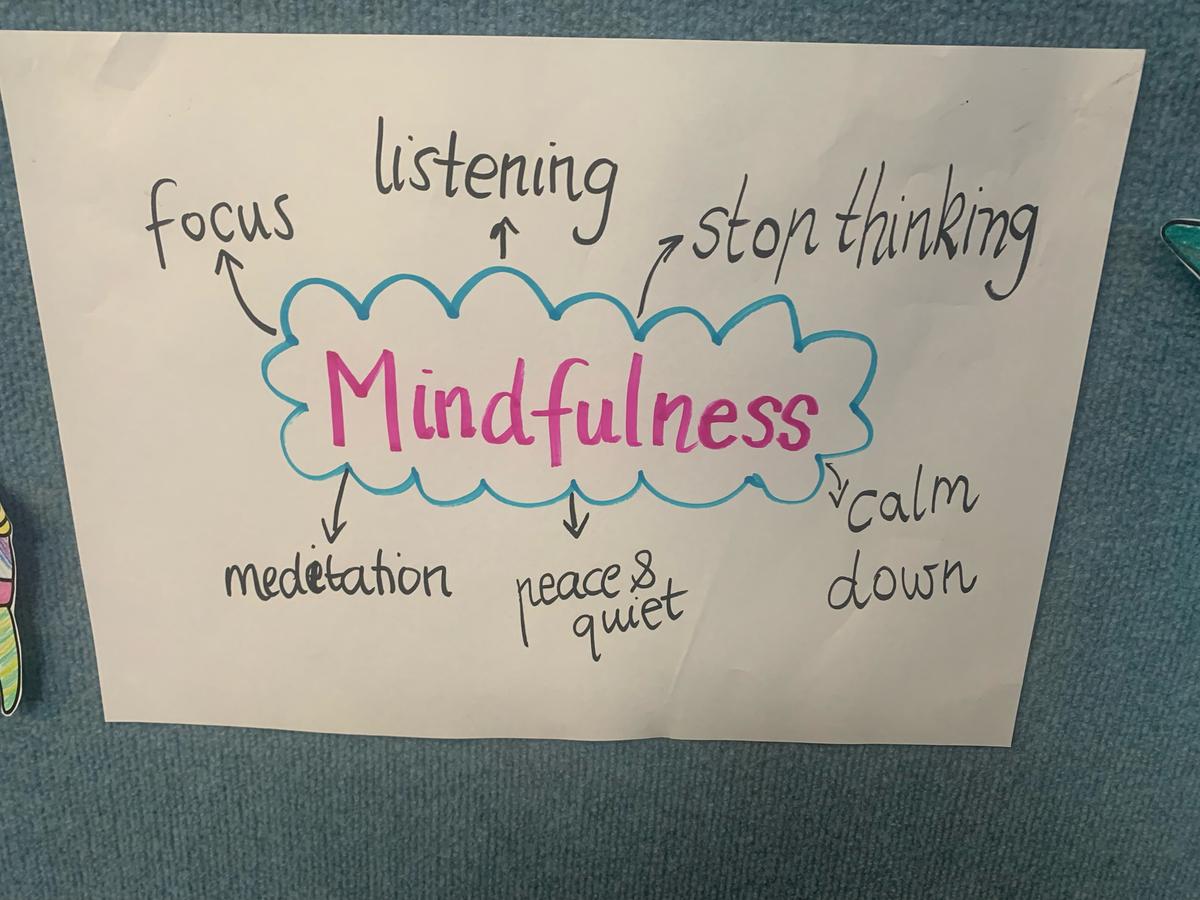 listening
focus
stop thinking
Mindfulness
calm
down
meditation
peace &
quiet